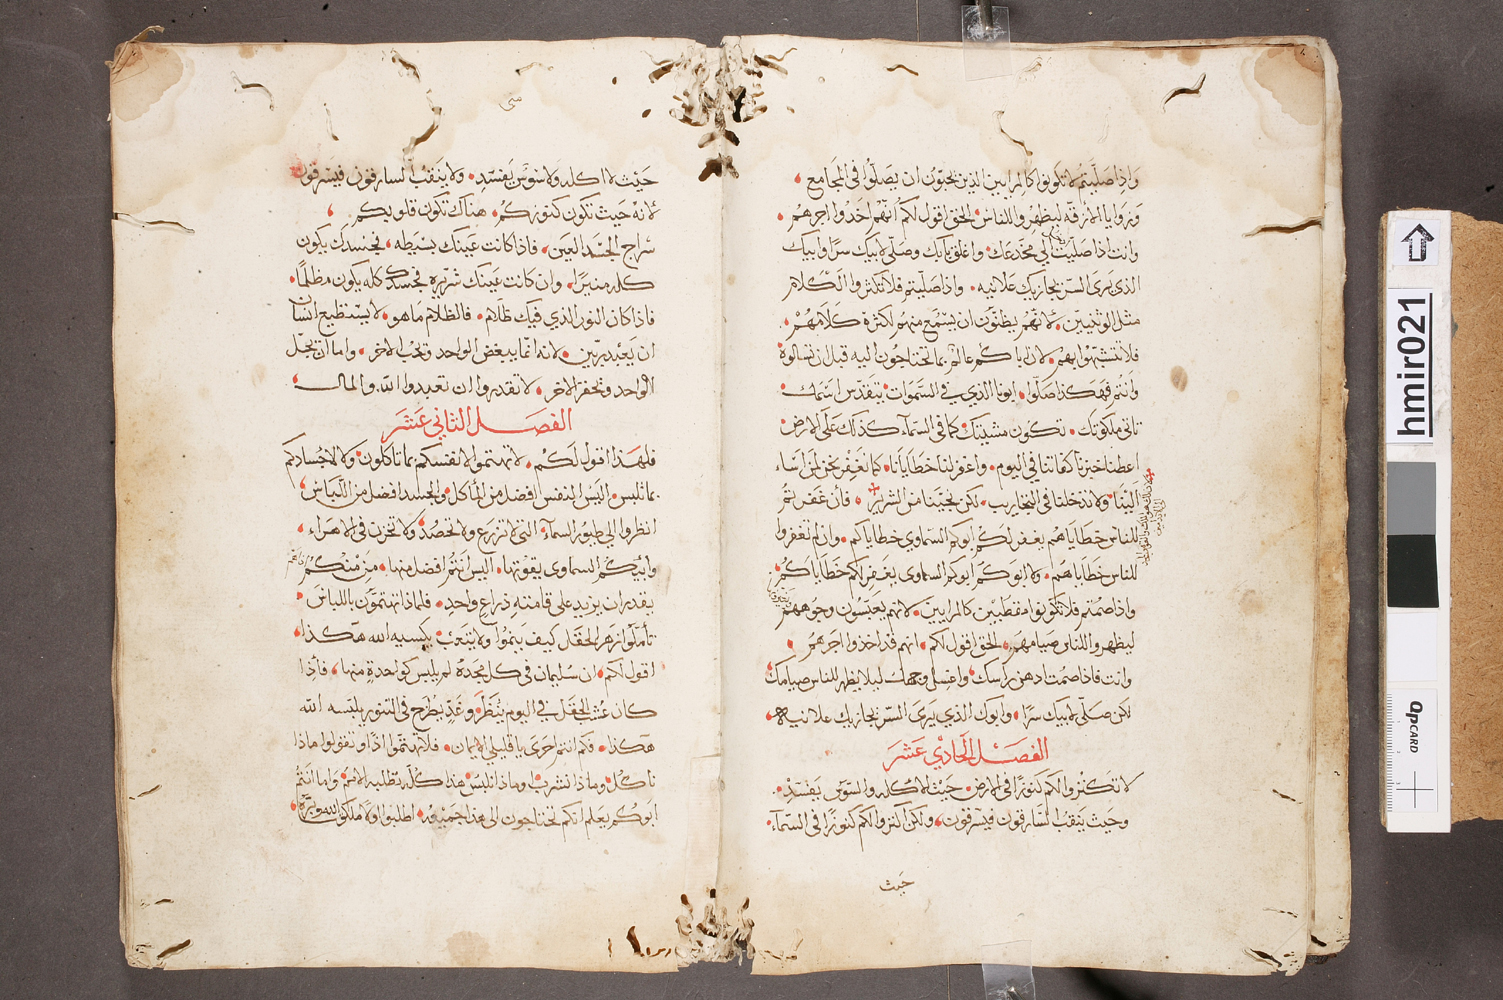 واذا صلّيتم لا تكونوا كالمرايين الذين يحبّون ان يصلّوا في المجامع
وزوايا الازقّه ليظهروا للناس الحق اقول لكم انهم اخذوا اجرهم
وانت اذا صلّيت الي مخدعك واغلق بابك وصلّي لابيك سرًّا وابيك
الذي يرى السرّ يجازيك علانيه واذا صلّيتم فلا تكثروا الكلام
مثل الوثنيين لانّهم يظنّون ان يستمع منهم لكثرة كلامهم
فلا تتشبّهوا بهم لان اباكم عالم بما تحتاجون اليه قبل ان تسالوه
وانتم فهكذا صلّوا ابونا الذي في السموات يتقدّس اسمك
تاتي ملكوتك تكون مشيتك كما في السمآء كذلك على الارض
اعطنا خبزنا كفاتنا في اليوم واغفر لنا خطايانا كما نغفر نحن لمن اساء
الينا ولا تدخلنا في التجاريب لكن نجّينا من الشرير فان غفرتم
للناس خطاياهم يغفر لكم ابوكم السماوي خطاياكم وان لم تغفروا
للناس خطاياهم ولا ابوكم ابوكم السماوي يغفر لكم خطاياكم
واذا صمتم فلا تكونوا مقطبين كالمرايين لانهم يعبّسون وجوههم
ليظهروا للناس صيامهم الحق اقول لكم انهم قد اخذوا اجرهم
وانت فاذا صمت ادهن راسك واغسل وجهك ليلا يظهر للناس صيامك
لكن صلّي لابيك سرًّا وابوك الذي يرى السرّ يجازيك علانيه
الفصل الحادي عشر
لا تكنزوا لكم كنوزًا في الارض حيث الاكله والسوس يفسد
وحيث ينقب السارقون فيسرقون ولكن اكنزوا لكم كنوزًا في السمآء
حيث
حيث لا اكله ولا سوس يفسد ولا ينقب السارقون فيسرقون
لانه حيث تكون كنوزكم هناك تكون قلوبكم
سراج الجسد العين فاذا كانت عينك بسيطه فجسدك يكون
كله منيرًا وان كانت عينك شريره فجسدك كله يكون مظلمًا
فاذا كان النور الذي فيك ظلام فالظلام ما هو لا يستطيع انسان
ان يعبد ربّين لانه انما يبغض الواحد ويحب الاخر واما ان يجلّ
الواحد ويحقر الاخر لا تقدروا ان تعبدوا الله والمال
الفصل الثاني عشر
فلهذا اقول لكم لا تهتموا لانفسكم بما تاكلون ولا لاجسادكم
بما تلبس اليس النفس افضل من الماكل والجسد افضل من اللباس
انظروا الي طيور السمآء التي لا تزرع ولا تحصد ولا تخزن في الاهراء
وابيكم السماوى يقوتها اليس انتم افضل منها من منكم
يقدر ان يزيد على قامته ذراع واحد فلماذا تهتمّون باللباس
تأملوا زهر الحقل كيف ينموا ولا يتعب يكسيه الله هكذا
اقول لكم ان سليمان في كل مجده لم يلبس كواحدة منها فاذا
كان عشب الحقل في اليوم ينظر وغدٍ يطرح في التنور يلبسه الله
هكذا فكم انتم احرى يا قليلي الايمان فلا تهتمّوا اذًا وتقولوا ماذا
ناكل وماذا نشرب وماذا نلبس هذا كلّه تطلبه الامم واما انتم
ابوكم يعلم انكم تحتاجون الى هذا جميعه اطلبوا اولًا ملكوت الله وبرّه